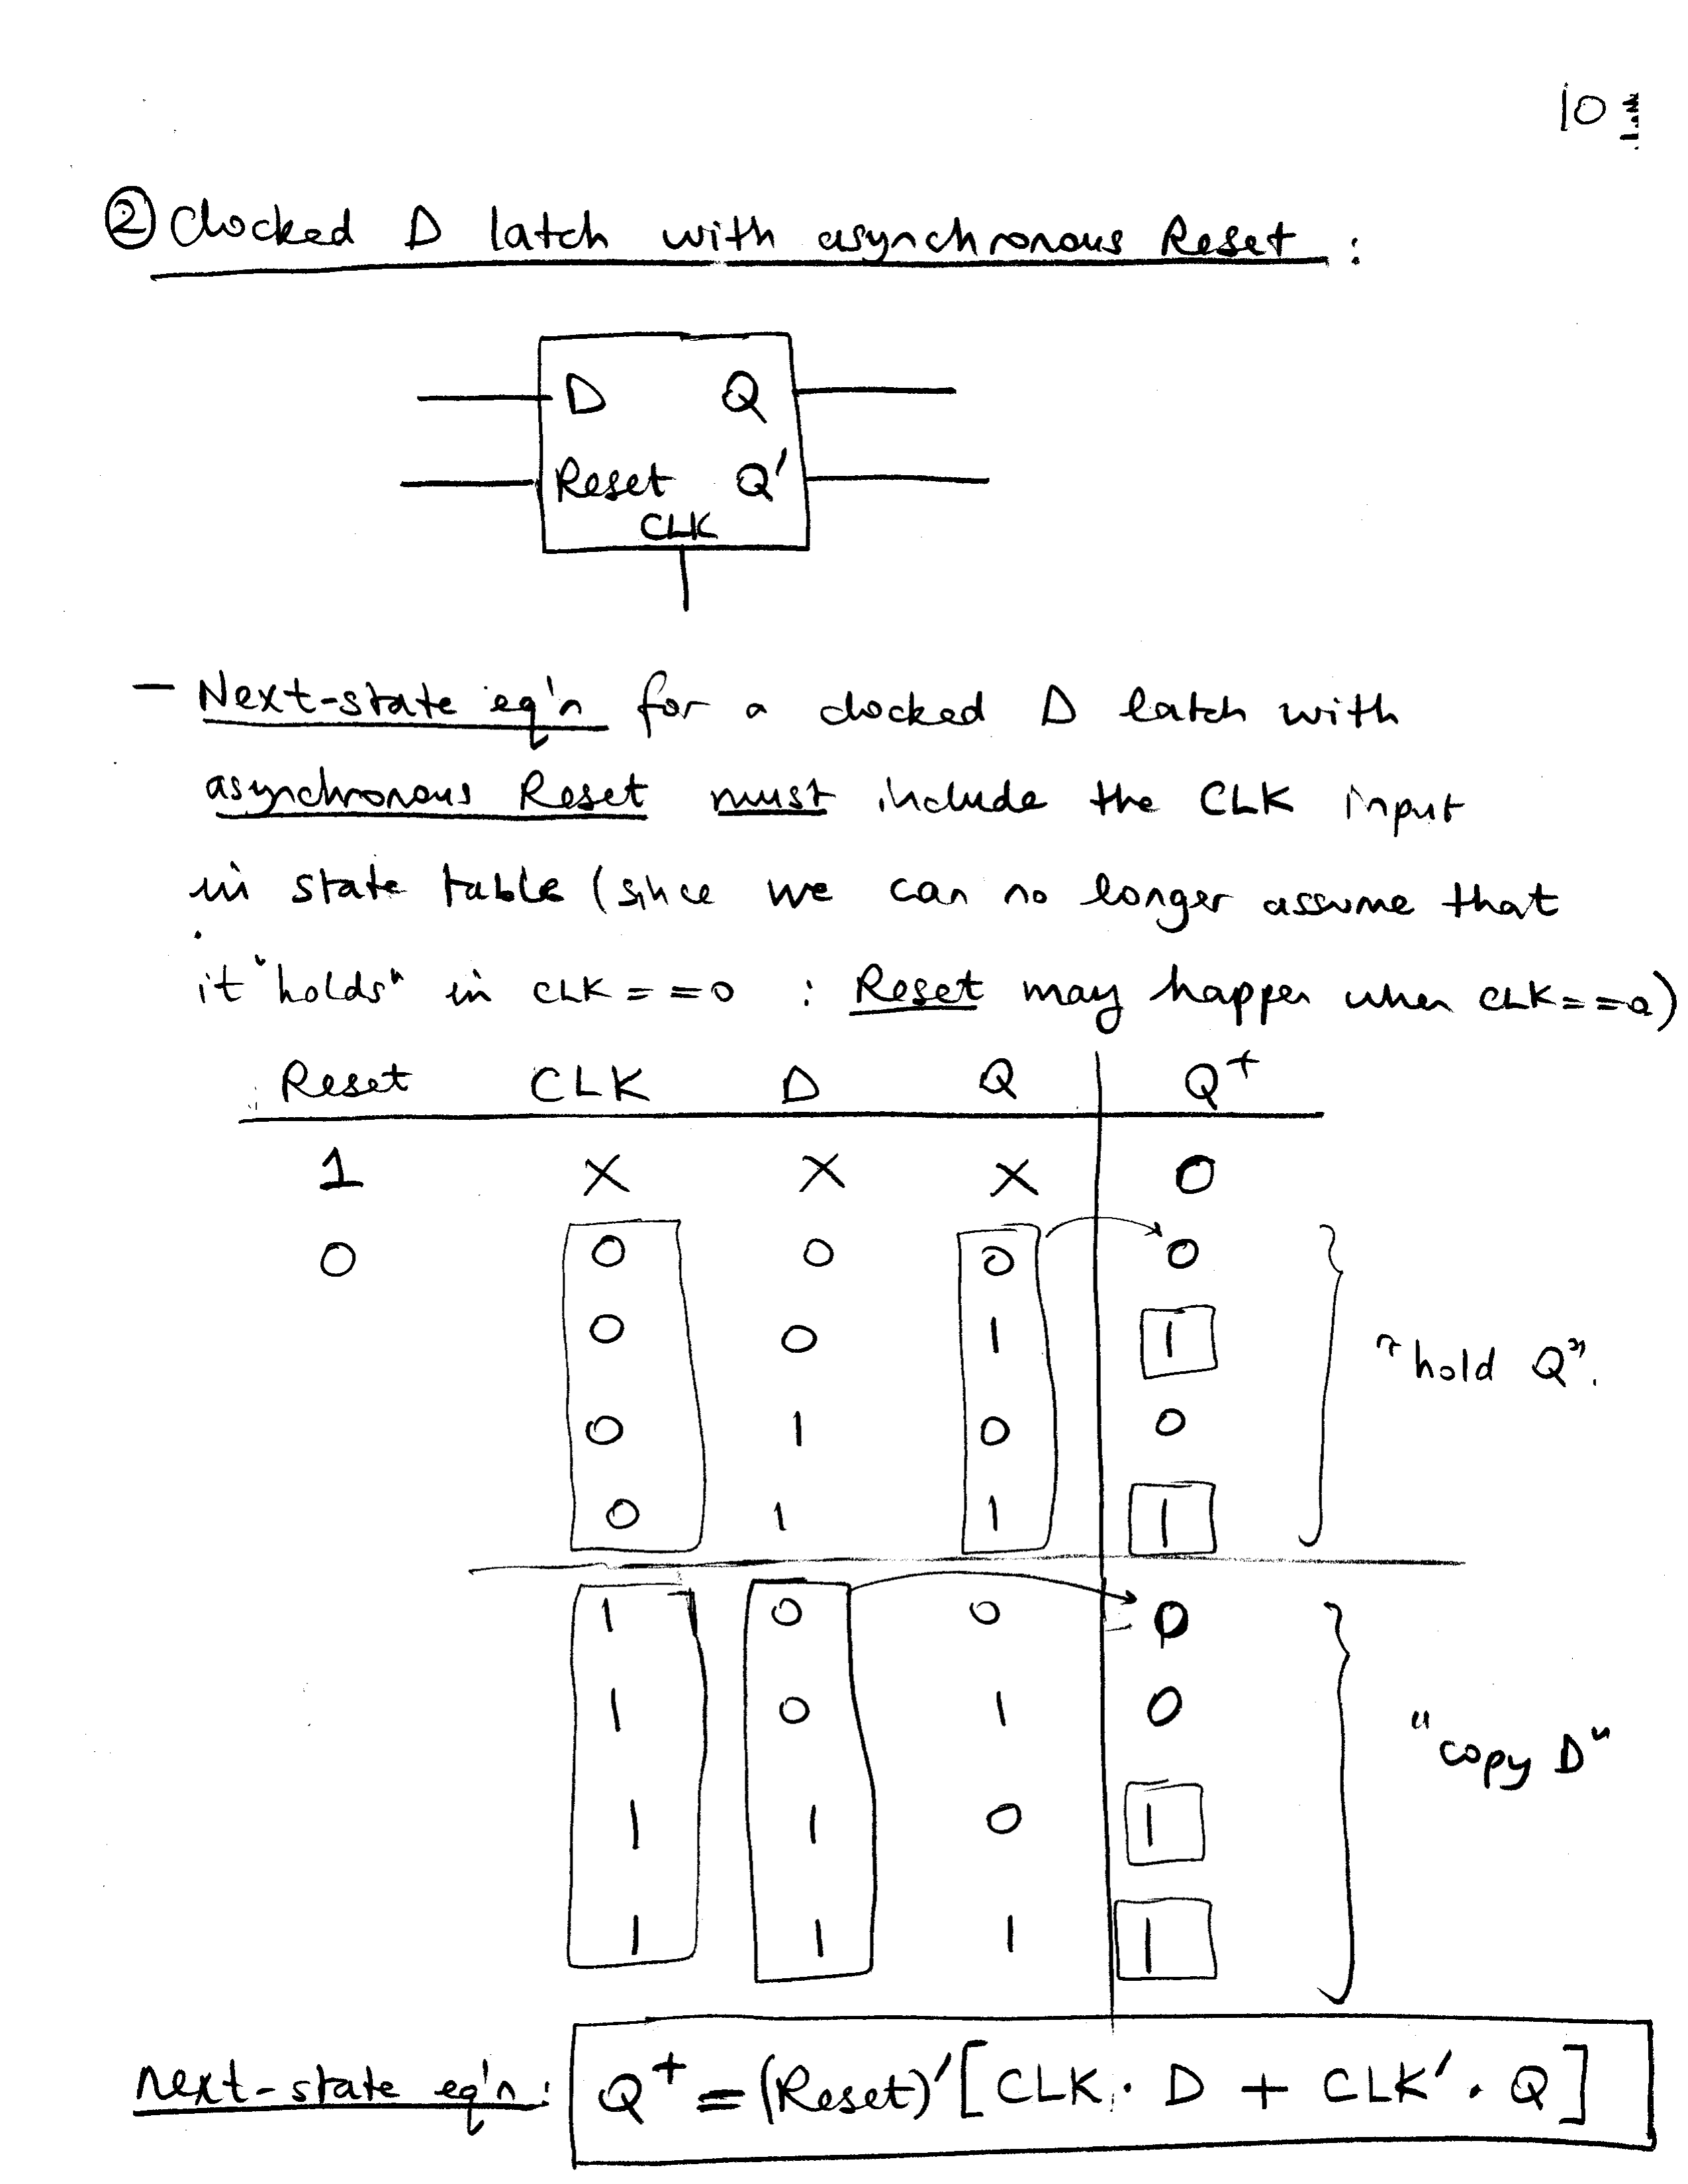 10
② Clocked D latch with asynchronous Reset :
D Q
Reset Q'
CLK
— Next-state eq'n for a clocked D latch with
asynchronous Reset must include the CLK input
in state table (since we can no longer assume that
it "holds" in CLK==0 : Reset may happen when CLK==0)
Reset CLK D Q Q+
1 X X X 0
0 0 0 0 0
0 0 1 1
0 1 0 0
0 1 1 1
"hold Q".
1 0 0 0
1 0 1 0
1 1 0 1
1 1 1 1
"copy D"
next-state eq'n: Q+ = (Reset)' [CLK · D + CLK' · Q]